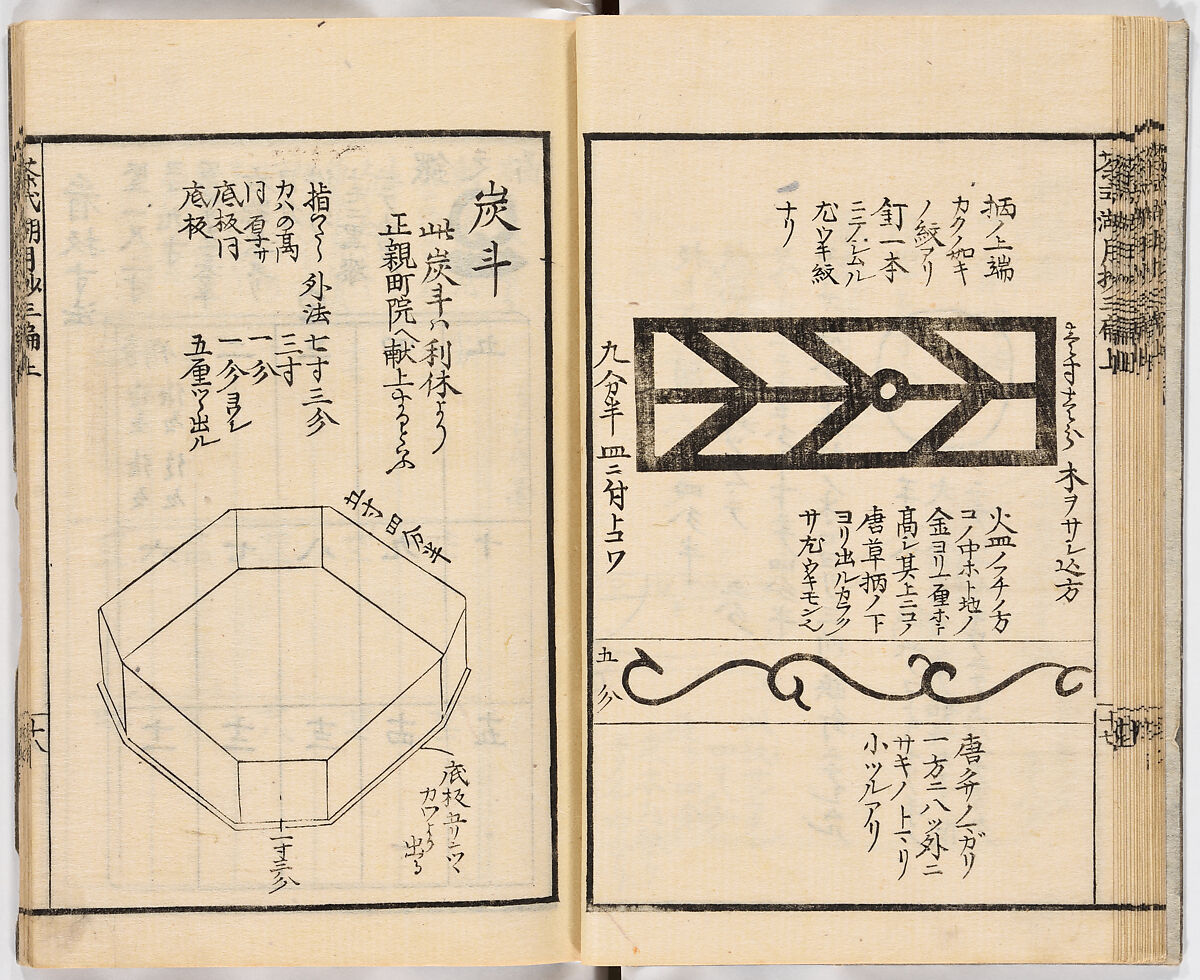 柄ノ上端
カクノ如キ
ノ紋アリ
釘一本
ニテシムル
尤ウキ紋
ナリ
壱寸壱分 木ヲサシ込方
九分半 皿ニ付上コワ
火皿ノフチノ方
コノ中ホト地ノ
金ヨリ一厘ホト
高シ其上ニコノ
唐草柄ノ下
ヨリ出ルカラク
サ尤ウキモン也
五分
唐クサノマガリ
一方ニ八ツ外ニ
サキノトマリ
小ツルアリ
十七
炭斗
此炭斗ハ利休より
正親町院へ献上すると云
指わたし 外法七寸三分
カハの高 三寸
同厚サ 一分
底板同 一分ヨワシ
底板 五厘ツヽ出ル
五寸四分半
底板五リンツヽ
カワより
出る
一寸三分
茶式湖月抄三編上
十八